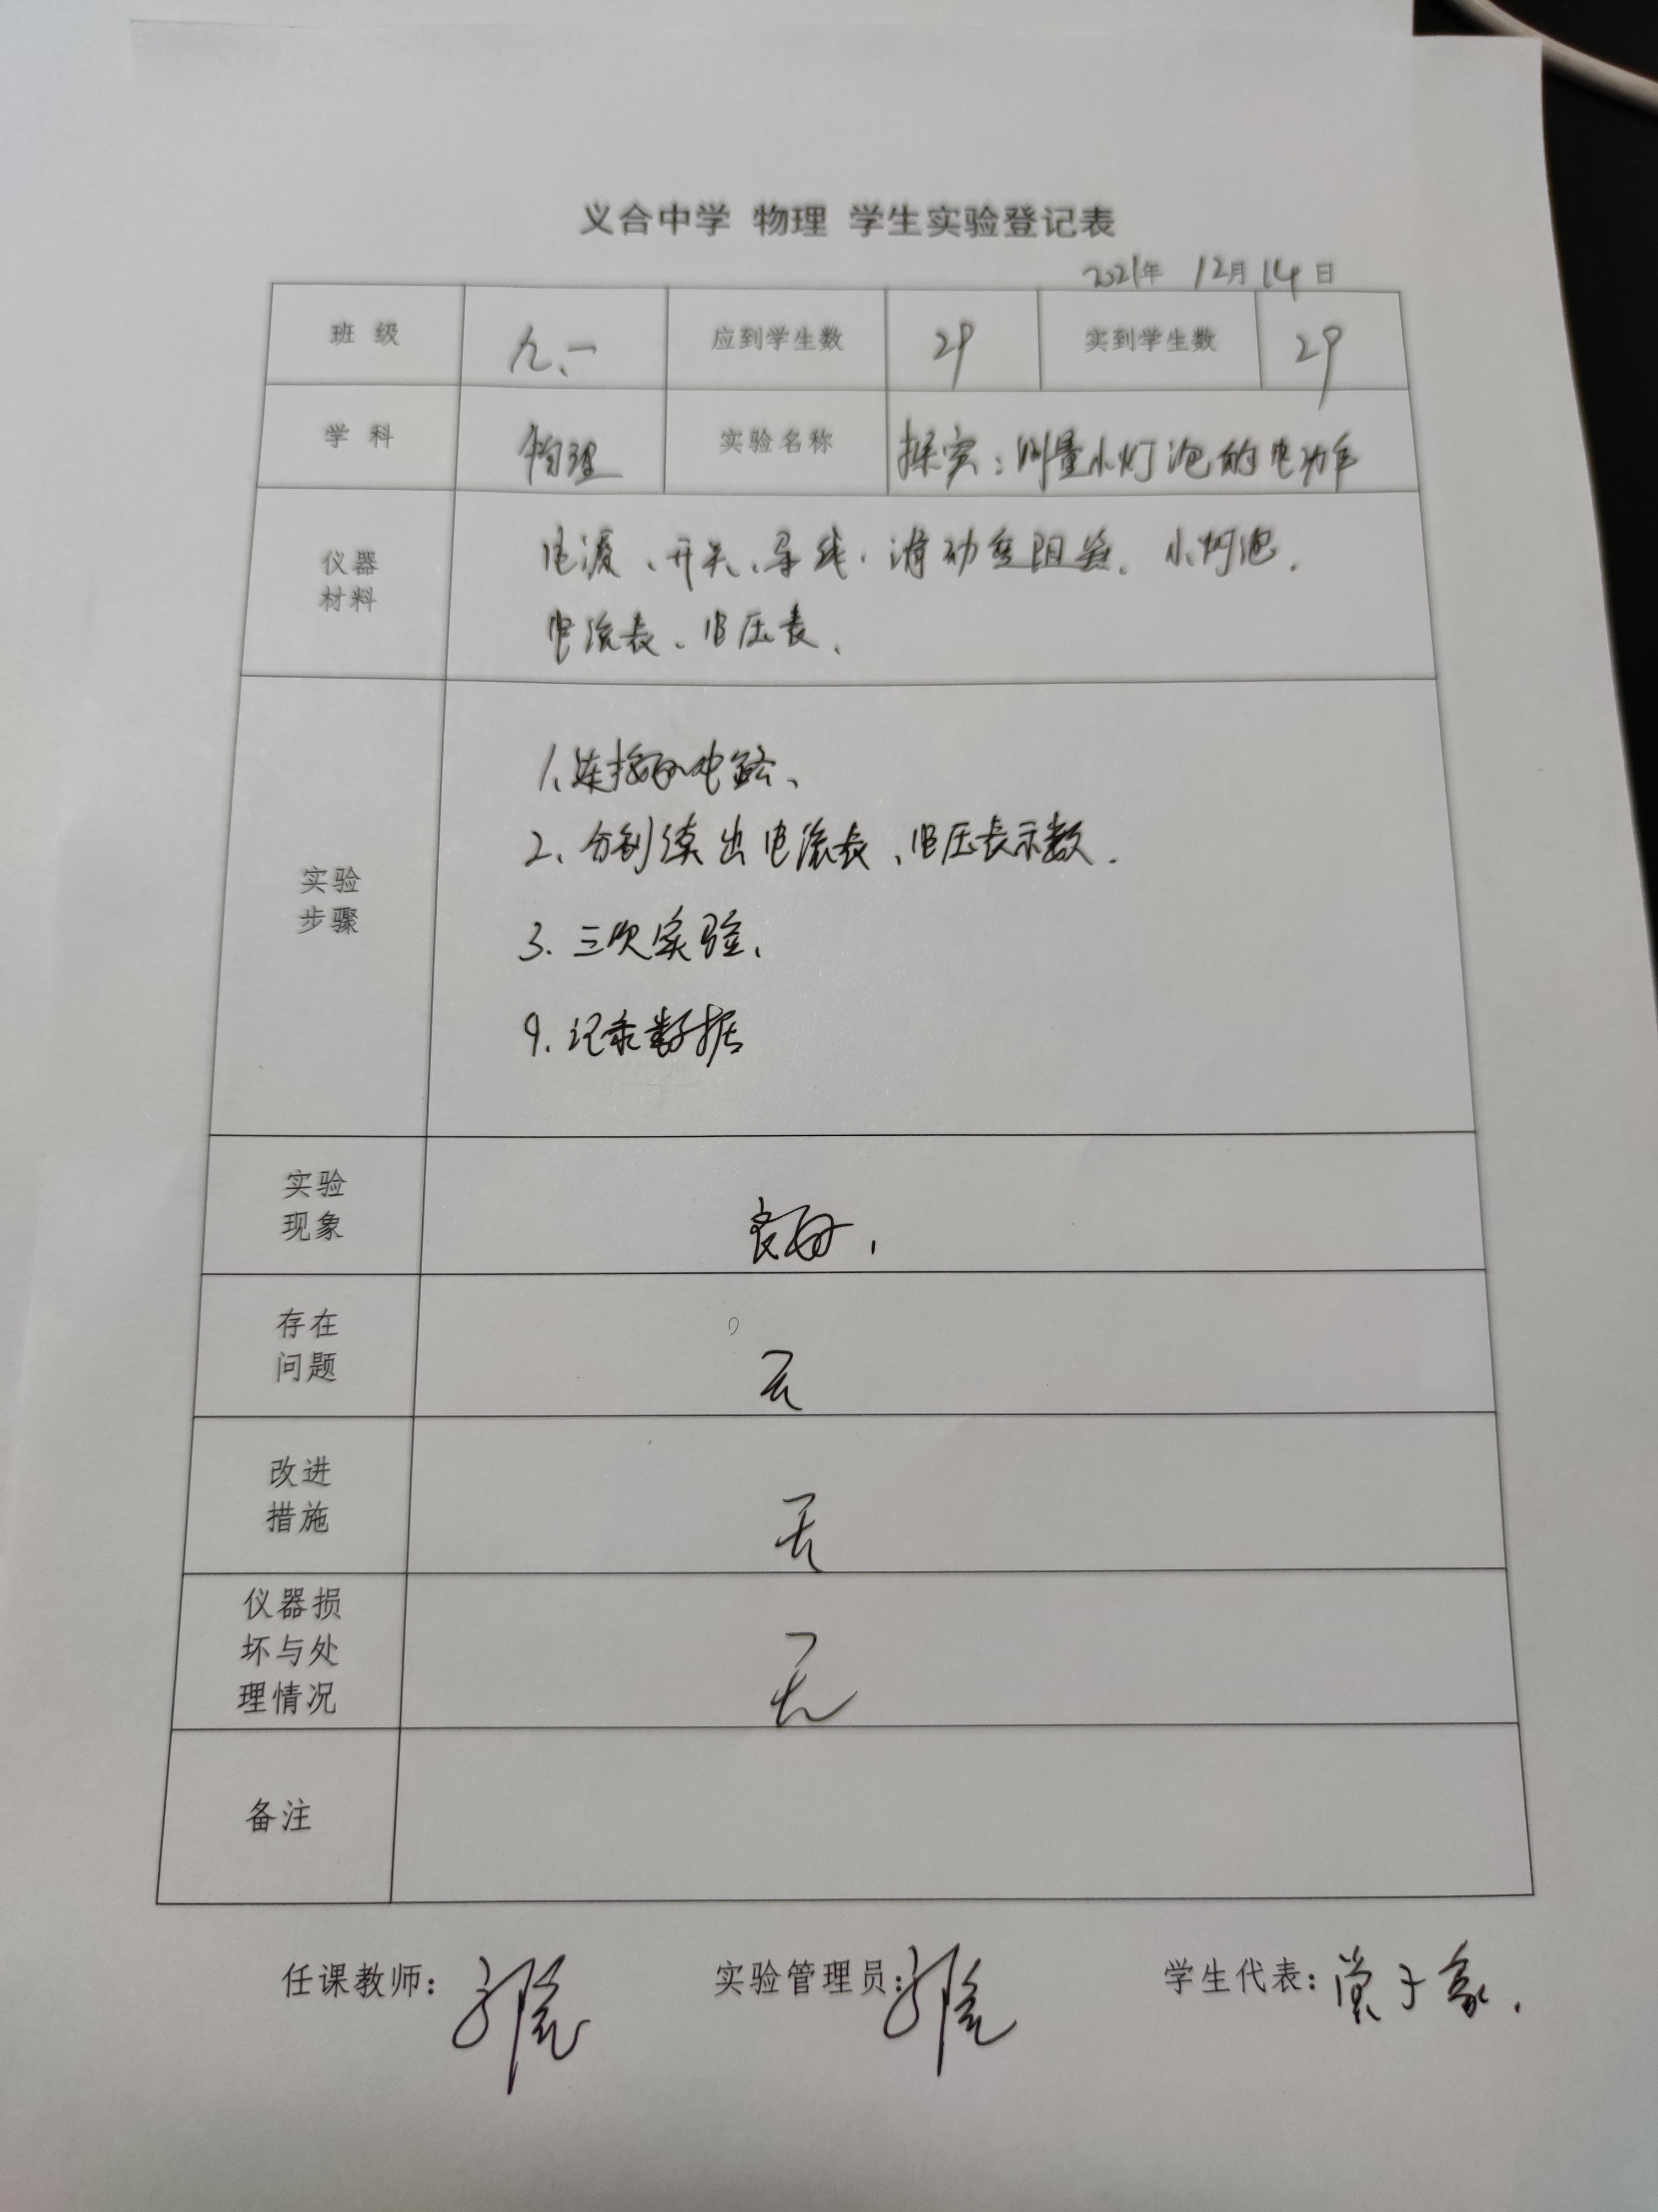 义合中学 物理 学生实验登记表
2021年 12月 14日
班 级 九、一 应到学生数 29 实到学生数 29
学 科 物理 实验名称 探究：测量小灯泡的电功率
仪器
材料
电源、开关、导线、滑动变阻器、小灯泡、
电流表、电压表、
实验
步骤
1、连接好电路、
2、分别读出电流表、电压表示数.
3. 三次实验、
4. 记录数据
实验
现象
良好、
存在
问题
无
改进
措施
无
仪器损
坏与处
理情况
无
备注
任课教师： 实验管理员： 学生代表：